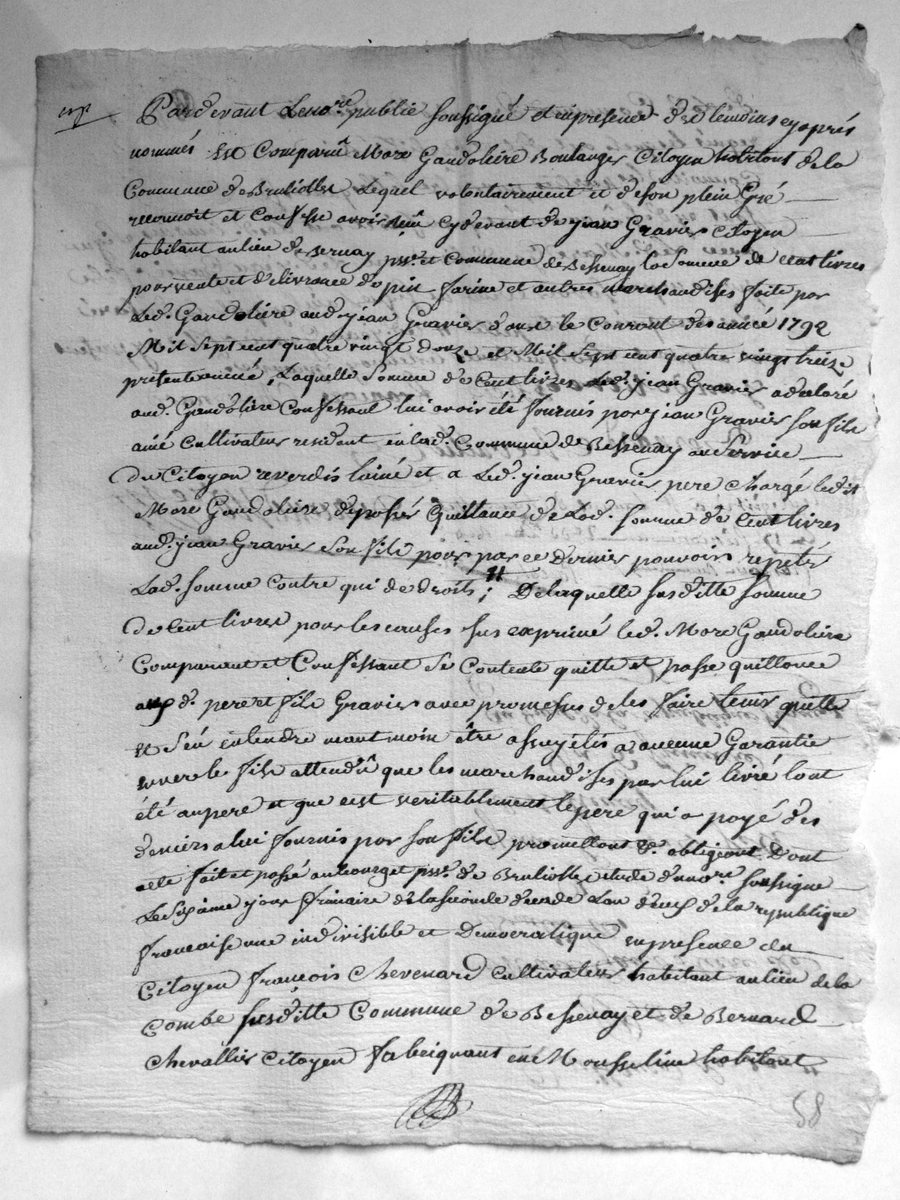 exp
Pardevant Le no.re public soussigné et en presence de temoins cy après
nommés est Comparu Marc Gaudoliere Boulanger Citoyen habitant de la
Commune de Brulliolle Lequel volontairement et de son plein Gré
reconnoit et Confesse avoir reçu cy devant de jean Gravier Citoyen
habitant au lieu de Bernay p.sse et Commune de Bessenay la somme de cent livres
pour vente et delivrance de pin farine et autres marchandises faite par
Led. Gaudoliere aud. jean Gravier dans le Courant des année 1792
Mil Sept cent quatre vingt douze et Mil Sept cent quatre vingt treize
presente année, Laquelle Somme de Cent livres Led. jean Gravier a declaré
aud. Gaudoliere Confessant lui avoir été fournis par jean Gravier son fils
ainé Cultivateur resident en lad. Commune de Bessenay au Service
du Citoyen reverdis lainé et a Led. jean Gravier pere Chargé ledit
Marc Gaudoliere de passer Quittance de Lad. somme de Cent livres
aud. jean Gravier son fils pour par ce Dernier pouvoir repeter
Lad. somme contre qui de droits; De laquelle susditte somme
de Cent livres pour les causes sus exprimé led. Marc Gaudoliere
Comparant et Confessant Se Contente quitte et passe quittance
auxd. pere et fils Gravier avec promesses de les faire tenir quitte
et s'en entendre neantmoin être assujétis a aucune Garantie
envers le fils attendû que les marchandises par lui livré l'ont
été au pere et que c'est veritablement le pere qui a payé des
deniers a lui fournis par son fils, promettant &. obligeant Dont
acte fait et passé au bourg et p.sse de Brulliolle etude du no.re soussigné
Le sixième jour frimaire de la seconde decade Lan deux de la republique
francaise une indivisible et Democratique en presence du
Citoyen françois Chevenard Cultivateur habitant au lieu de la
Combe susditte Commune de Bessenay et de Bernard
Chevallier Citoyen fabriquant en Mousseline habitant
58